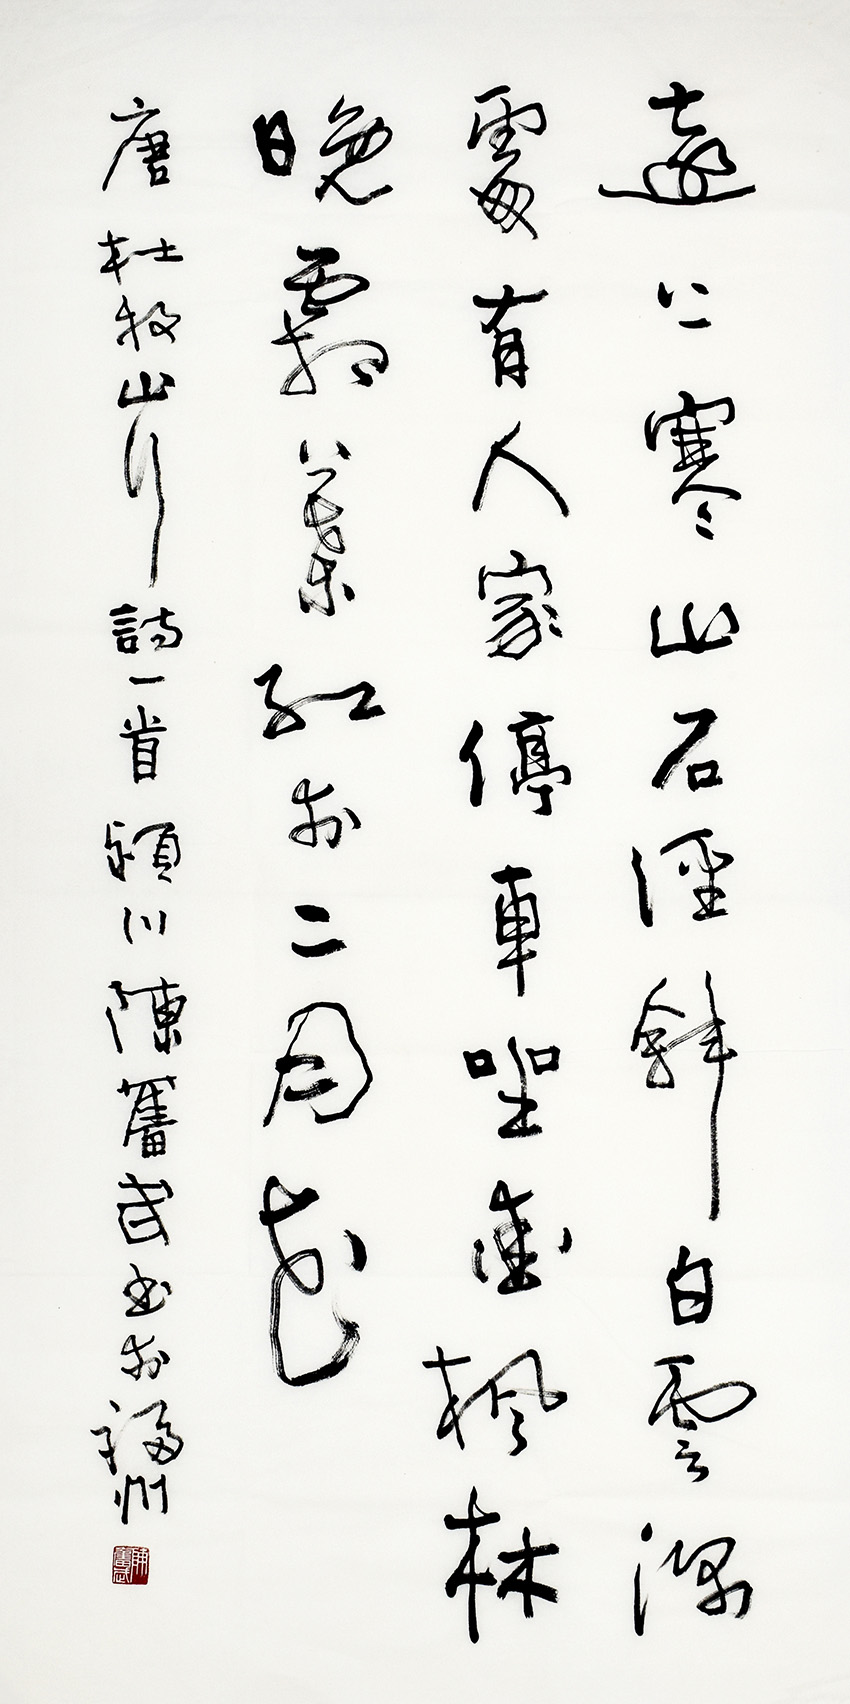 遠上寒山石徑斜白雲深
處有人家停車坐愛楓林
晚霜葉紅於二月花
唐杜牧山行詩一首潁川陳奮武書於福州
陳奮武